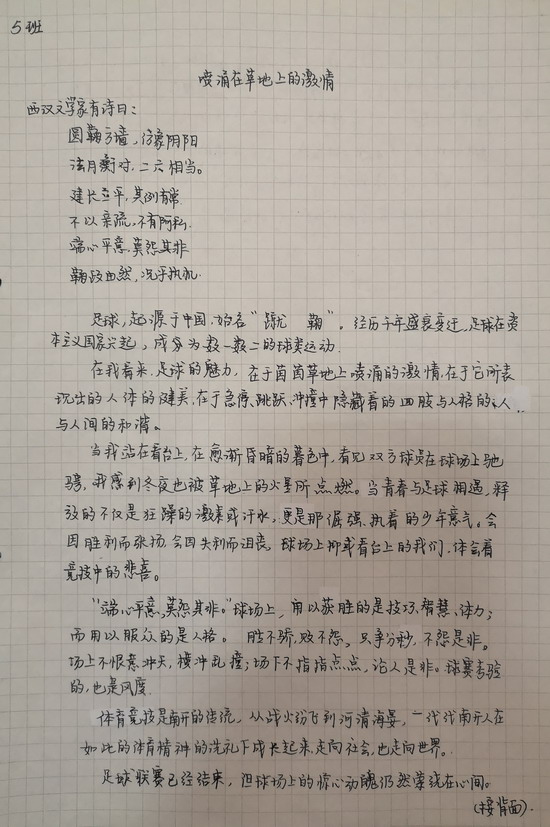 5班
喷涌在草地上的激情
西汉文学家有诗曰:
圆鞠方墙,仿象阴阳
法月衡对,二六相当。
建长立平,其例有常
不以亲疏,不有阿私
端心平意,莫怨其非
鞠政由然,况乎执机.
足球,起源于中国,始名“蹴 鞠”。经历千年盛衰变迁,足球在资
本主义国家兴起,成分为数一数二的球类运动.
在我看来,足球的魅力,在于茵茵草地上喷涌的激情,在于它所表
现出的人体的健美,在于急停、跳跃、冲撞中隐藏着的血肢与人格的、人
与人间的和谐。
当我站在看台上,在愈渐昏暗的暮色中,看见双方球员在球场上驰
骋,我感到冬夜也被草地上的火星所点燃。当青春与足球相遇,释
放的不仅是狂躁的激素或汗水,更是那倔强、执着的少年意气。会
因胜利而张扬,会因失利而沮丧.球场上抑或看台上的我们,体会着
竞技中的悲喜。
“端心平意,莫怨其非。”球场上,用以获胜的是技巧、智慧、体力;
而用以服众的是人格。胜不骄,败不怨。只争分秒,不怨是非。
场上不恨意冲天,横冲乱撞;场下不指指点点,论人是非。球赛考验
的,也是风度.
体育竞技是南开的传统,从战火纷飞到河清海晏,一代代南开人在
如此的体育精神的洗礼下成长起来,走向社会,也走向世界。
足球联赛已经结束,但球场上的惊心动魄仍然萦绕在心间。
(接背面).